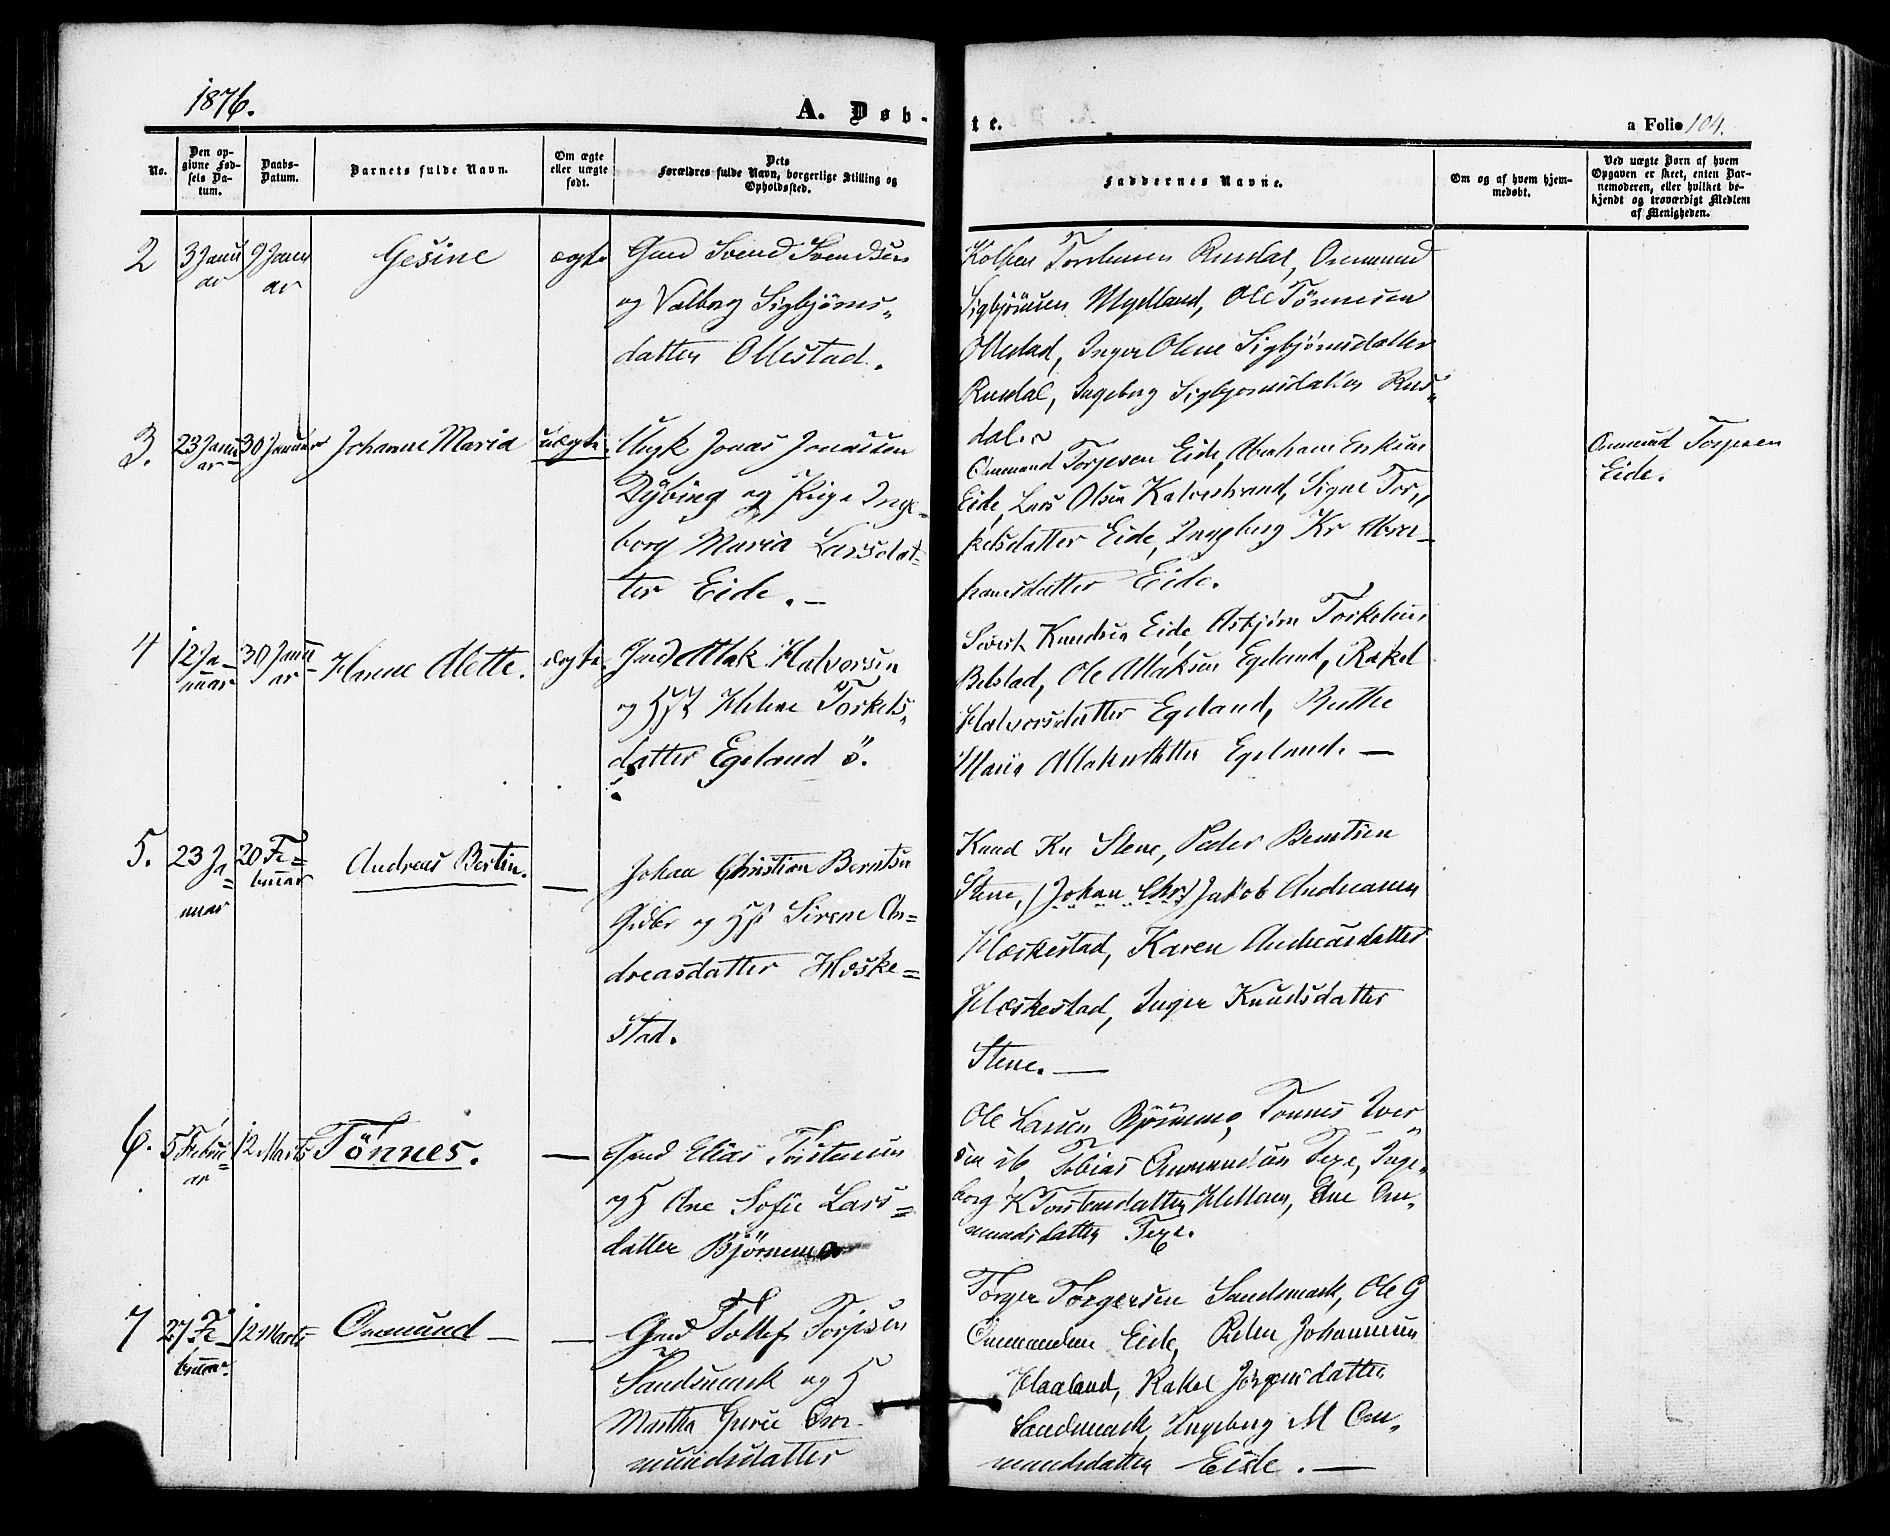 1876.
A. Døb-
te.
a Folio 104.
No.
Den op-
givne Fød-
sels Da-
tum.
Daabs-
Datum.
Barnets fulde Navn.
Om ægte
eller uægte
født.
Dets
Forældres fulde Navn, borgerlige Stilling og
Opholdssted.
Faddernes Navne.
Om og af hvem hjem-
medøbt.
Ved uægte Børn af hvem
Opgaven er skeet, enten Bar-
nemoderen, eller hvilket be-
kjendt og troværdigt Medlem
af Menigheden.
2
3 Janu
ar
9 Janu
ar
Gesine
ægte
Gmd Svend Svendsen
og Valborg Sigbjörns„
datter Ollestad.
Rusdal, Ommund
Sigbjörnsen Mydland, Ole Tönnesen
Ollestad, Inger Oline Sigbjörnsdatter
Rusdal, Ingeborg Sigbjörnsdatter Rus„
dal
3.
23 Janu
ar
30 Januar
Johanne Maria
uægte.
Ungk Jonas Jonassen
Dybing og Pige Inge„
borg Maria Larsdat-
ter Eide. —
Ommund Torjesen Eide, Abraham Eriksen
Eide, Lars Olsen Kalvestrand, Signe Tor„
kelsdatter Eide, Ingeborg Kr Abra-
hamsdatter Eide.
Ommund Torjesen
Eide.
4
12 Ja-
nuar
30 Janu
ar
Hanne Alette.
ægte.
Gmd Atlak Halvorsen
og H Helene Torkels„
datter Egeland ö.
Sivert Knudsen Eide, Asbjörn Torkelsen
Belstad, Ole Atlaksen Egeland, Rakel
Halvorsdatter Egeland,
Maria Atlaksdatter Egeland. —
5.
23 Ja=
nuar
20 Fe=
bruar
Andreas Bertin.
—
Johan Christian Berntsen
Gdbr og H Sirene An=
dreasdatter Heske=
stad.
Knud Kn Stene, Peder Berntsen
Stene, (Johan Chr) Jakob Andreasen
Heskestad, Karen Andreasdatter
Heskestad, Inger Knudsdatter
Stene. —
6.
5 Febru=
ar
12 Marts
Tönnes.
—
Gmd Elias Torstensen
og H Ane Sofie Lars=
datter Björnemo
Ole Larsen Björnemo, Tönnes Iver„
sen ib, Tobias Ommundsen Texe, Inge„
borg K Torstensdatter Helland, Ane Om„
mundsdatter Texe.
7
27 Fe-
bruar
12 Marts
Ommund —
—
Gmd Tollef Torjesen
Sandsmark og H
Martha Gurie Om-
mundsdatter
Torger Torgersen Sandsmark, Ole G
Ommundsen Eide, Peder Johannesen
Haaland, Rakel Jörgensdatter
Sandsmark, Ingeborg M Om„
mundsdatter Eide. —